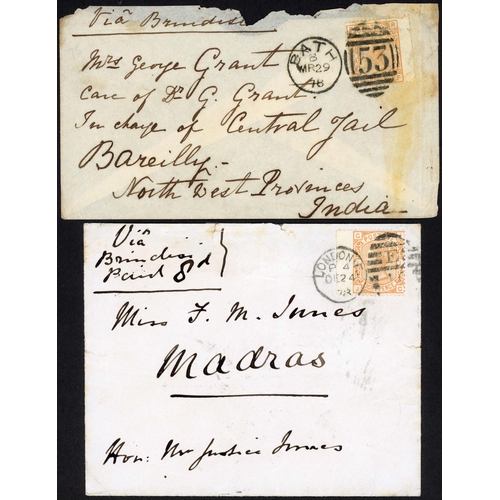 Viâ Brindisi
BATH
B
MR29
78
53
Mrs George Grant
Care of Dr G. Grant.
In charge of Central Jail
Bareilly
North West Provinces
India
Viâ
Brindisi
Paid 8d
LONDON
P 4
DE 24
Miss F. M. Innes
Madras
Hon: Mr Justice Innes